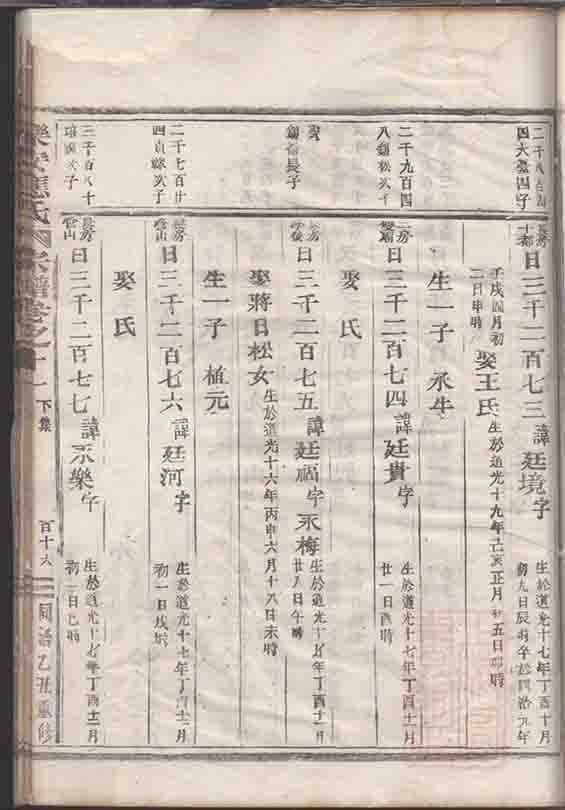 長房 十都 曰三千二百七三 諱廷境字 生於道光十七年丁酉十月
初九日辰時卒於同治元年
壬戌四月初
二日申時 娶王氏 生於道光十九年己亥正月廿五日卯時
生一子 永牛
二千九百四
八 曰三千二百七四 諱廷貴字 生於道光十七年丁酉十一月
廿一日酉時
娶氏
長子
長房 曰三千二百七五 諱廷福字永梅 生於道光十七年丁酉十一月
廿八日午時
娶蔣日松女 生於道光十六年丙申六月十八日未時
生一子 植元
二千七百廿
四 次子
長房 曰三千二百七六 諱廷河字 生於道光十七年丁酉十二月
初一日戌時
娶氏
三千百八十
次子
長房 曰三千二百七七 諱永樂字 生於道光十七年丁酉十二月
初二日巳時
氏 宗譜卷之十 下集 百十六 同治乙丑重修